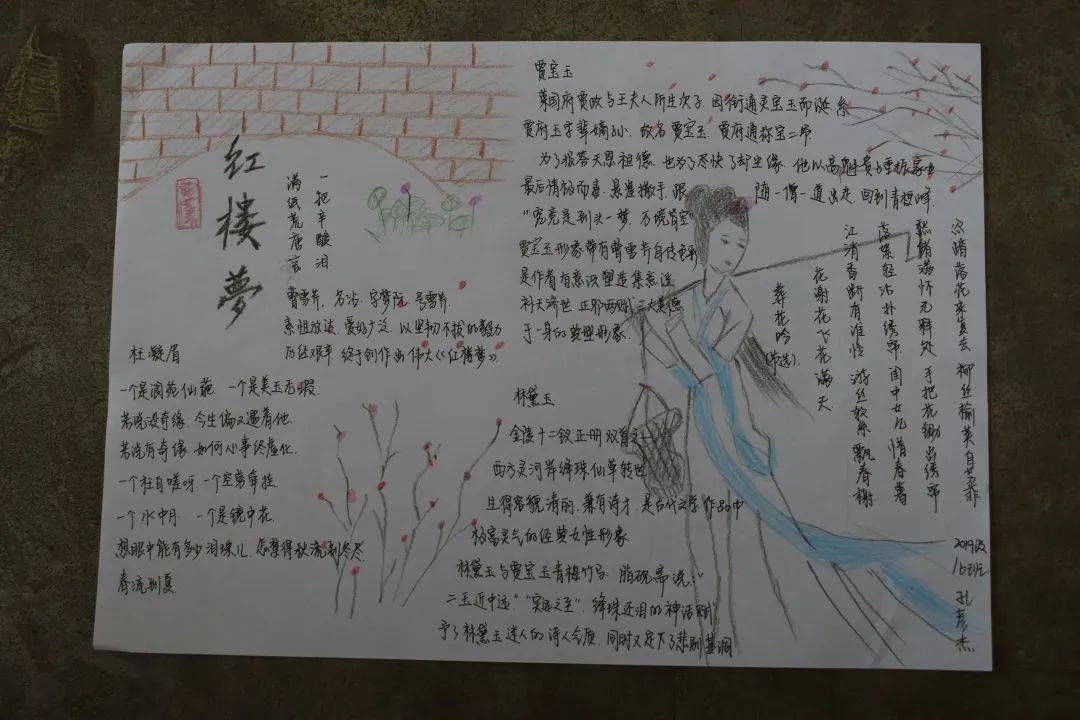 红楼夢
满纸荒唐言
一把辛酸泪
曹雪芹，名沾，字梦阮，号雪芹
素性放达，爱好广泛，以坚韧不拔的毅力
历经艰辛 终于创作出伟大《红楼梦》
枉凝眉
一个是阆苑仙葩 一个是美玉无瑕
若说没奇缘，今生偏又遇着他
若说有奇缘，如何心事终虚化
一个枉自嗟呀，一个空劳牵挂
一个水中月 一个是镜中花
想眼中能有多少泪珠儿，怎禁得秋流到冬尽
春流到夏
贾宝玉
荣国府贾政与王夫人所生次子，因衔通灵宝玉而诞，系
贾府玉字辈嫡孙，故名贾宝玉，贾府通称宝二爷
为了报答天恩祖德，也为了尽快了却尘缘，他以高魁贵子重振家业
最后情极而毒，悬崖撒手，跟随一僧一道出走，回到青埂峰，
“究竟是到头一梦，万境皆空”
贾宝玉形象带有曹雪芹自传色彩
是作者有意识塑造集意淫
补天济世 正邪两赋 三大美德
于一身的典型形象
林黛玉
金陵十二钗正册双首之一
西方灵河岸绛珠仙草转世
生得容貌清丽，兼有诗才，是古代文学作品中
极富灵气的经典女性形象
林黛玉与贾宝玉青梅竹马，脂砚斋说：
二玉近中远”“实远之至”，绛珠还泪的神话赋
予了林黛玉迷人的诗人气质，同时又定下了悲剧基调
葬花吟
(节选)
花谢花飞花满天
江消香断有谁怜 游丝软系飘春榭
落絮轻沾扑绣帘 闺中女儿惜春暮
愁绪满怀无释处 手把花锄出绣帘
忍踏落花来复去 柳丝榆荚自芳菲
2019级
16班
孔彦杰